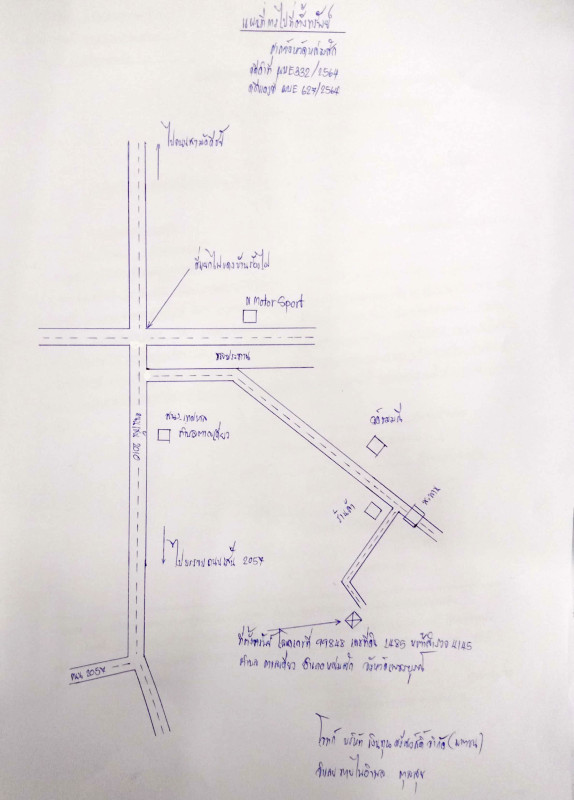 แผนที่การไปที่ตั้งทรัพย์
ศาลจังหวัดหล่มสัก
คดีดำที่ ผบE332/2564
คดีแดงที่ ผบE 627/2564
ไปถนนสามัคคีชัย
สี่แยกไฟแดงบ้านร้องไผ่
ส Motor Sport
ชลประทาน
วัด
สนง.เทศบาล
ตำบลตาลเดี่ยว
ถนนเส้น 2010
ร้านค้า
สะพาน
ไปบรรจบถนนเส้นที่ 2057
ที่ตั้งทรัพย์ โฉนดเลขที่ 49843 เลขที่ดิน 1485 หน้าสำรวจ 4145
ตำบล ตาลเดี่ยว อำเภอหล่มสัก จังหวัดเพชรบูรณ์
ถนน 2057
โจทก์ บริษัท เงินทุน ศรีสวัสดิ์ จำกัด (มหาชน)
จำเลย นายไมอำพล